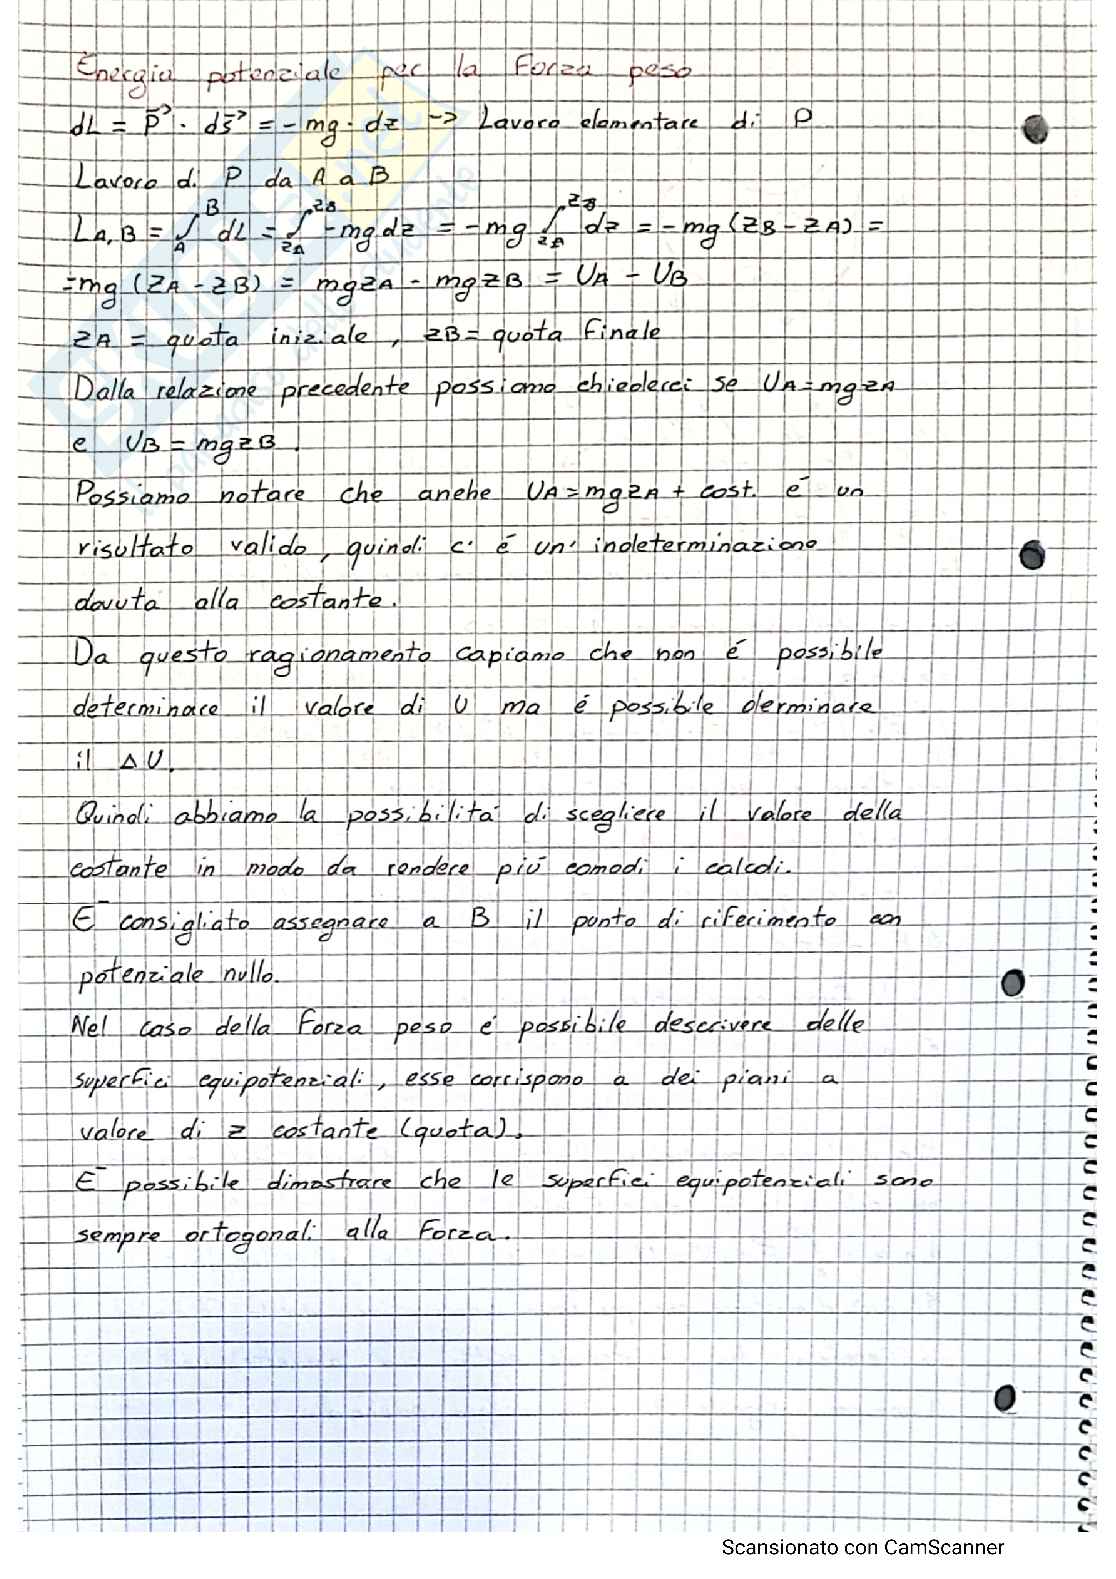 Energia potenziale per la Forza peso
dL = P⃗ · ds⃗ = -mg · dz -> Lavoro elementare di P
Lavoro di P da A a B
LA,B = ∫_A^B dL = ∫_zA^zB -mgdz = -mg ∫_zA^zB dz = -mg (zB - zA) =
=mg (zA - zB) = mgzA - mgzB = UA - UB
zA = quota iniziale, zB = quota finale
Dalla relazione precedente possiamo chiederci se UA=mgzA
e UB = mgzB.
Possiamo notare che anche UA=mgzA + cost. é un
risultato valido, quindi c'é un'indeterminazione
dovuta alla costante.
Da questo ragionamento capiamo che non é possibile
determinare il valore di U ma é possibile derminare
il ΔU.
Quindi abbiamo la possibilitá di scegliere il valore della
costante in modo da rendere piú comodi i calcoli.
É consigliato assegnare a B il punto di riferimento con
potenziale nullo.
Nel caso della Forza peso é possibile descrivere delle
superfici equipotenziali, esse corrispono a dei piani a
valore di z costante (quota).
É possibile dimostrare che le superfici equipotenziali sono
sempre ortogonali alla Forza.
Scansionato con CamScanner